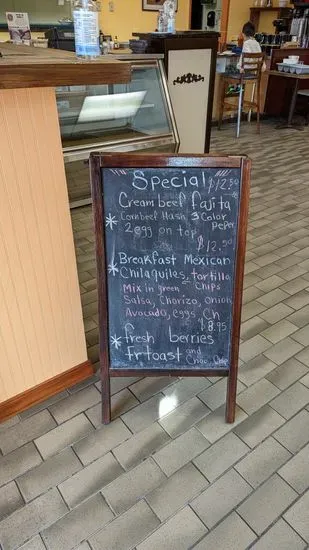 Special $12.50
Cream beef fajita
Cornbeef Hash 3 Color
Peper
2 egg on top
$12.5
Breakfast Mexican
Chilaquiles, tortilla
Mix in green Chips
Salsa, Chorizo, onion
Avocado, eggs Ch
$8.95
fresh berries
Fr toast and
Choc. Chip